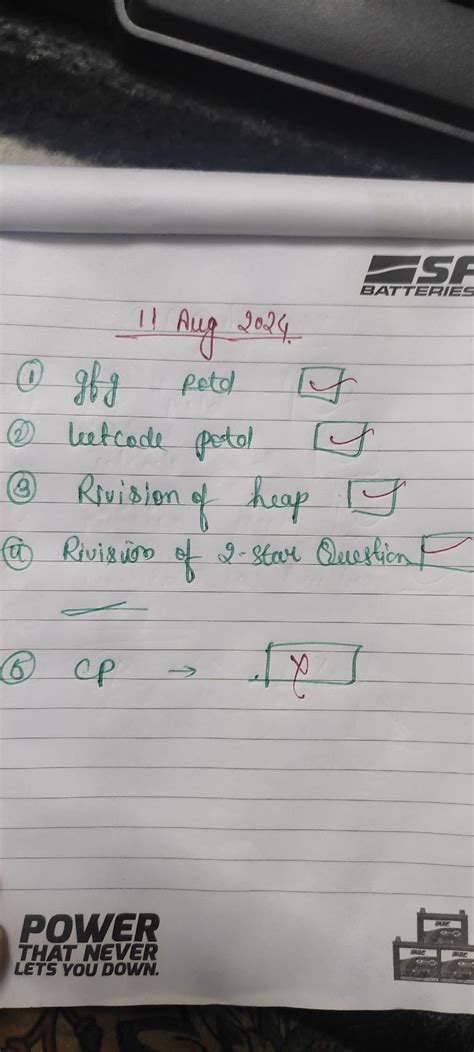 SF
BATTERIES
11 Aug 2024.
① gfg potd
② leetcode potd
③ Rivision of heap
④ Rivision of 2-star Question
⑤ CP → X
POWER
THAT NEVER
LETS YOU DOWN.